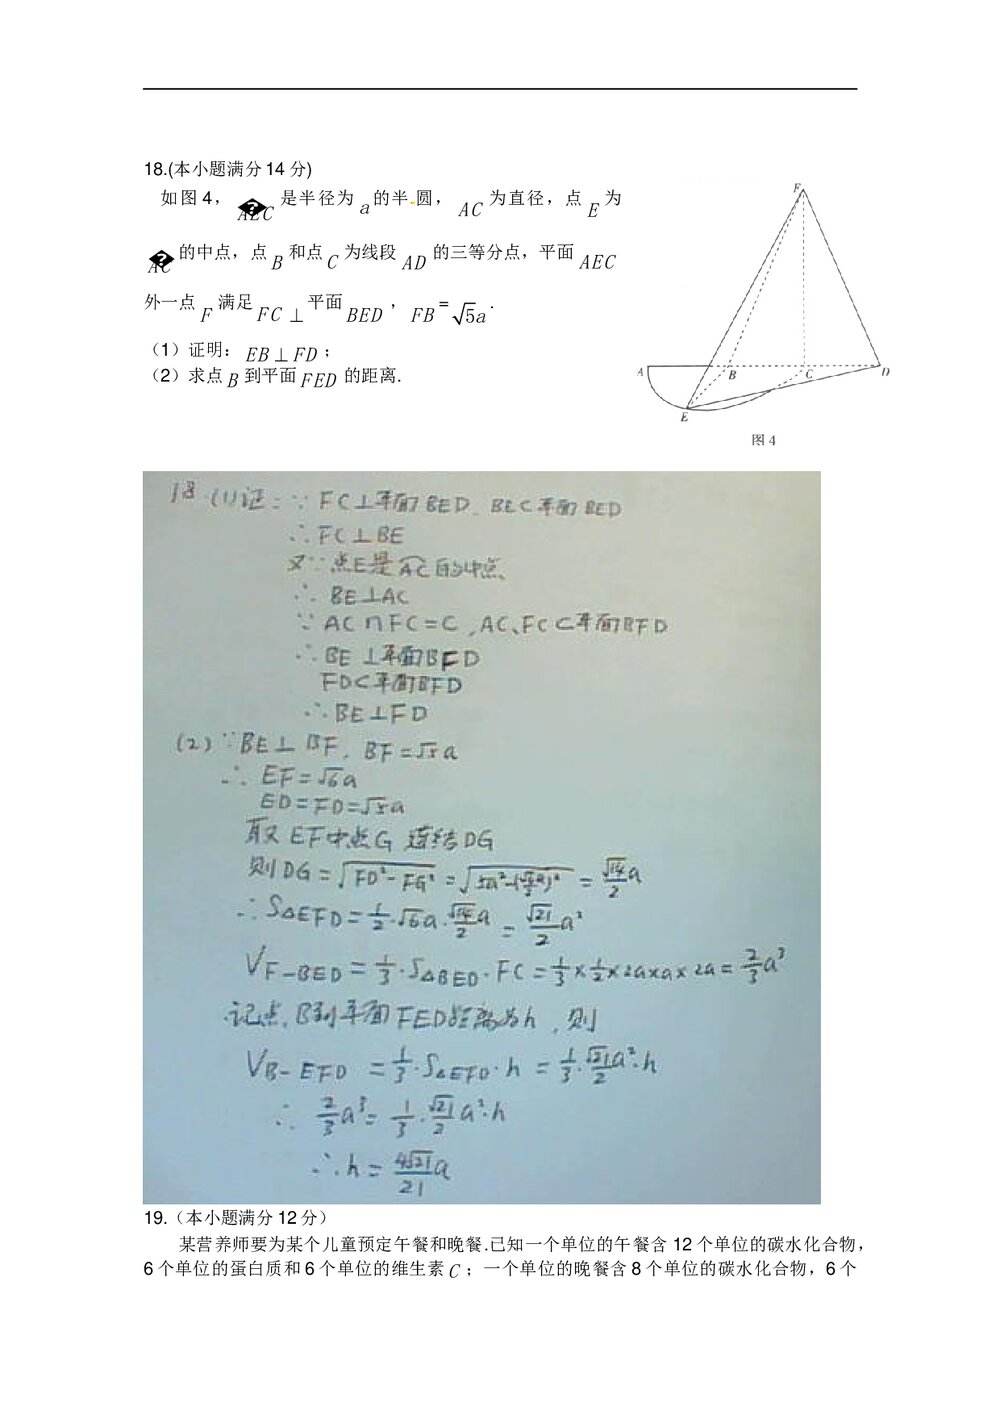 18.(本小题满分 14 分)
如图 4， AEC 是半径为 a 的半圆， AC 为直径，点 E 为
AC 的中点，点 B 和点 C 为线段 AD 的三等分点，平面 AEC
外一点 F 满足 FC ⊥ 平面 BED ， FB = √5a .
（1）证明： EB ⊥ FD ；
（2）求点 B 到平面 FED 的距离.
F
A B C D
E
图 4
18 (1)证：∵ FC⊥平面BED、BE⊂平面BED
∴FC⊥BE
又∵点E是AC的中点
∴ BE⊥AC
∵ AC∩FC=C，AC、FC⊂平面BFD
∴BE⊥平面BFD
FD⊂平面BFD
∴BE⊥FD
(2) ∵BE⊥BF，BF=√5a
∴ EF=√6a
ED=FD=√5a
取EF中点G 连结DG
则DG=√(FD²-FG²)=√(5a²-(√6a/2)²)=√14/2 a
∴S△EFD=1/2·√6a·√14/2 a=√21/2 a²
V F-BED=1/3·S△BED·FC=1/3×1/2×2a×a×2a=2/3 a³
记点B到平面FED距离为h，则
V B-EFD=1/3·S△EFD·h=1/3·√21/2 a²·h
∴ 2/3 a³=1/3·√21/2 a²·h
∴h=4√21/21 a
19.（本小题满分 12 分）
某营养师要为某个儿童预定午餐和晚餐.已知一个单位的午餐含 12 个单位的碳水化合物，
6 个单位的蛋白质和 6 个单位的维生素 C ；一个单位的晚餐含 8 个单位的碳水化合物，6 个